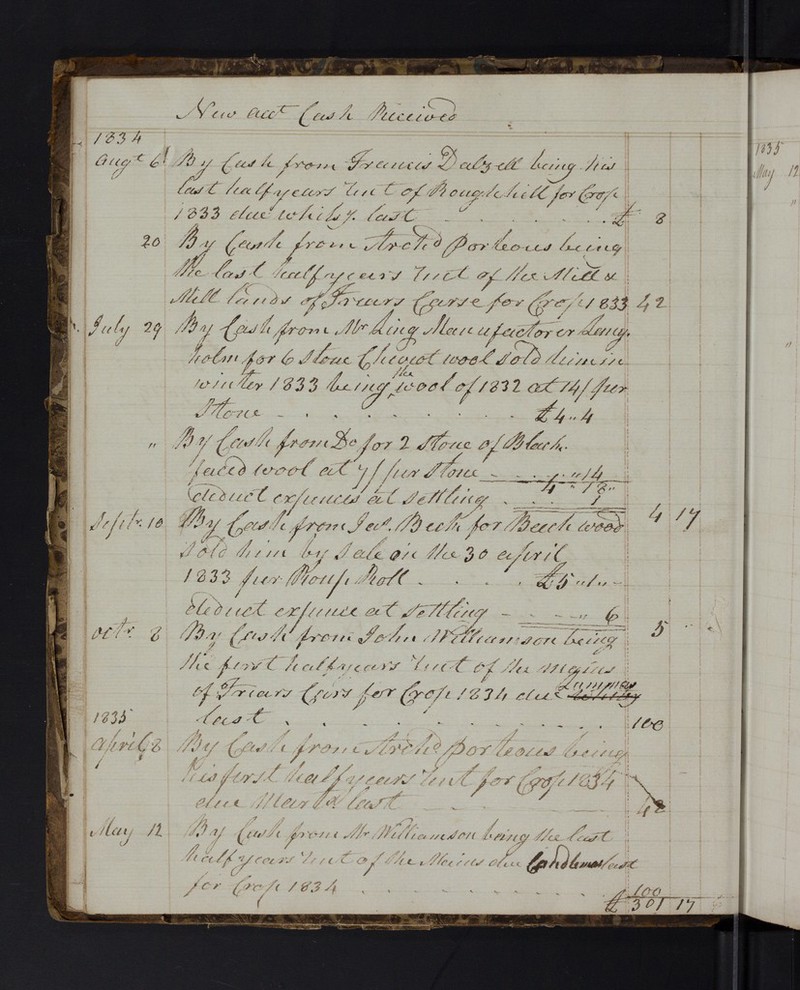 New acct Cash Received
1834
Augt 6 By Cash from Francis Dalzell being his
last halfyears rent of Roughhill for Crop
1833 due whitsy. last - - - - - £ 8
20 By Cash from Archd Porteous being
the last halfyears rent of the Mill &
Mill lands of Friars Carse for Crop 1833 42
July 29 By Cash from Mr King Manufactorer Lang.
holm for 6 stone Cheviot wool sold him in
winter 1833 being the wool of 1832 at 14/ per
Stone - - - - - £4 " 4
" By Cash from Do for 2 stone of Black.
faced wool at 7/ per stone - - " 14
4 " 18 "
deduct expences at settling - - 1
4 17
Septr. 10 By Cash from Jas. Beck for Beech wood
sold him by sale on the 30 april
1833 per Roup Roll - - - - £5 " 1 " -
deduct expence at settling - - - " 6
5 " -
octr. 8 By Cash from John Williamson being
the first halfyears rent of the mains
of Friars Cars for Crop 1834 due Lammas
last - - - - - 100
1835
April 8 By Cash from Archd Porteous being
his first halfyears rent for Crop 1834
due Marts last - - 42
May 12 By Cash from Mr Williamson being the last
halfyears rent of the Mains due Candlemas last
for Crop 1834 - - - - - 100
£ 301 17
1835
May 12
"
"